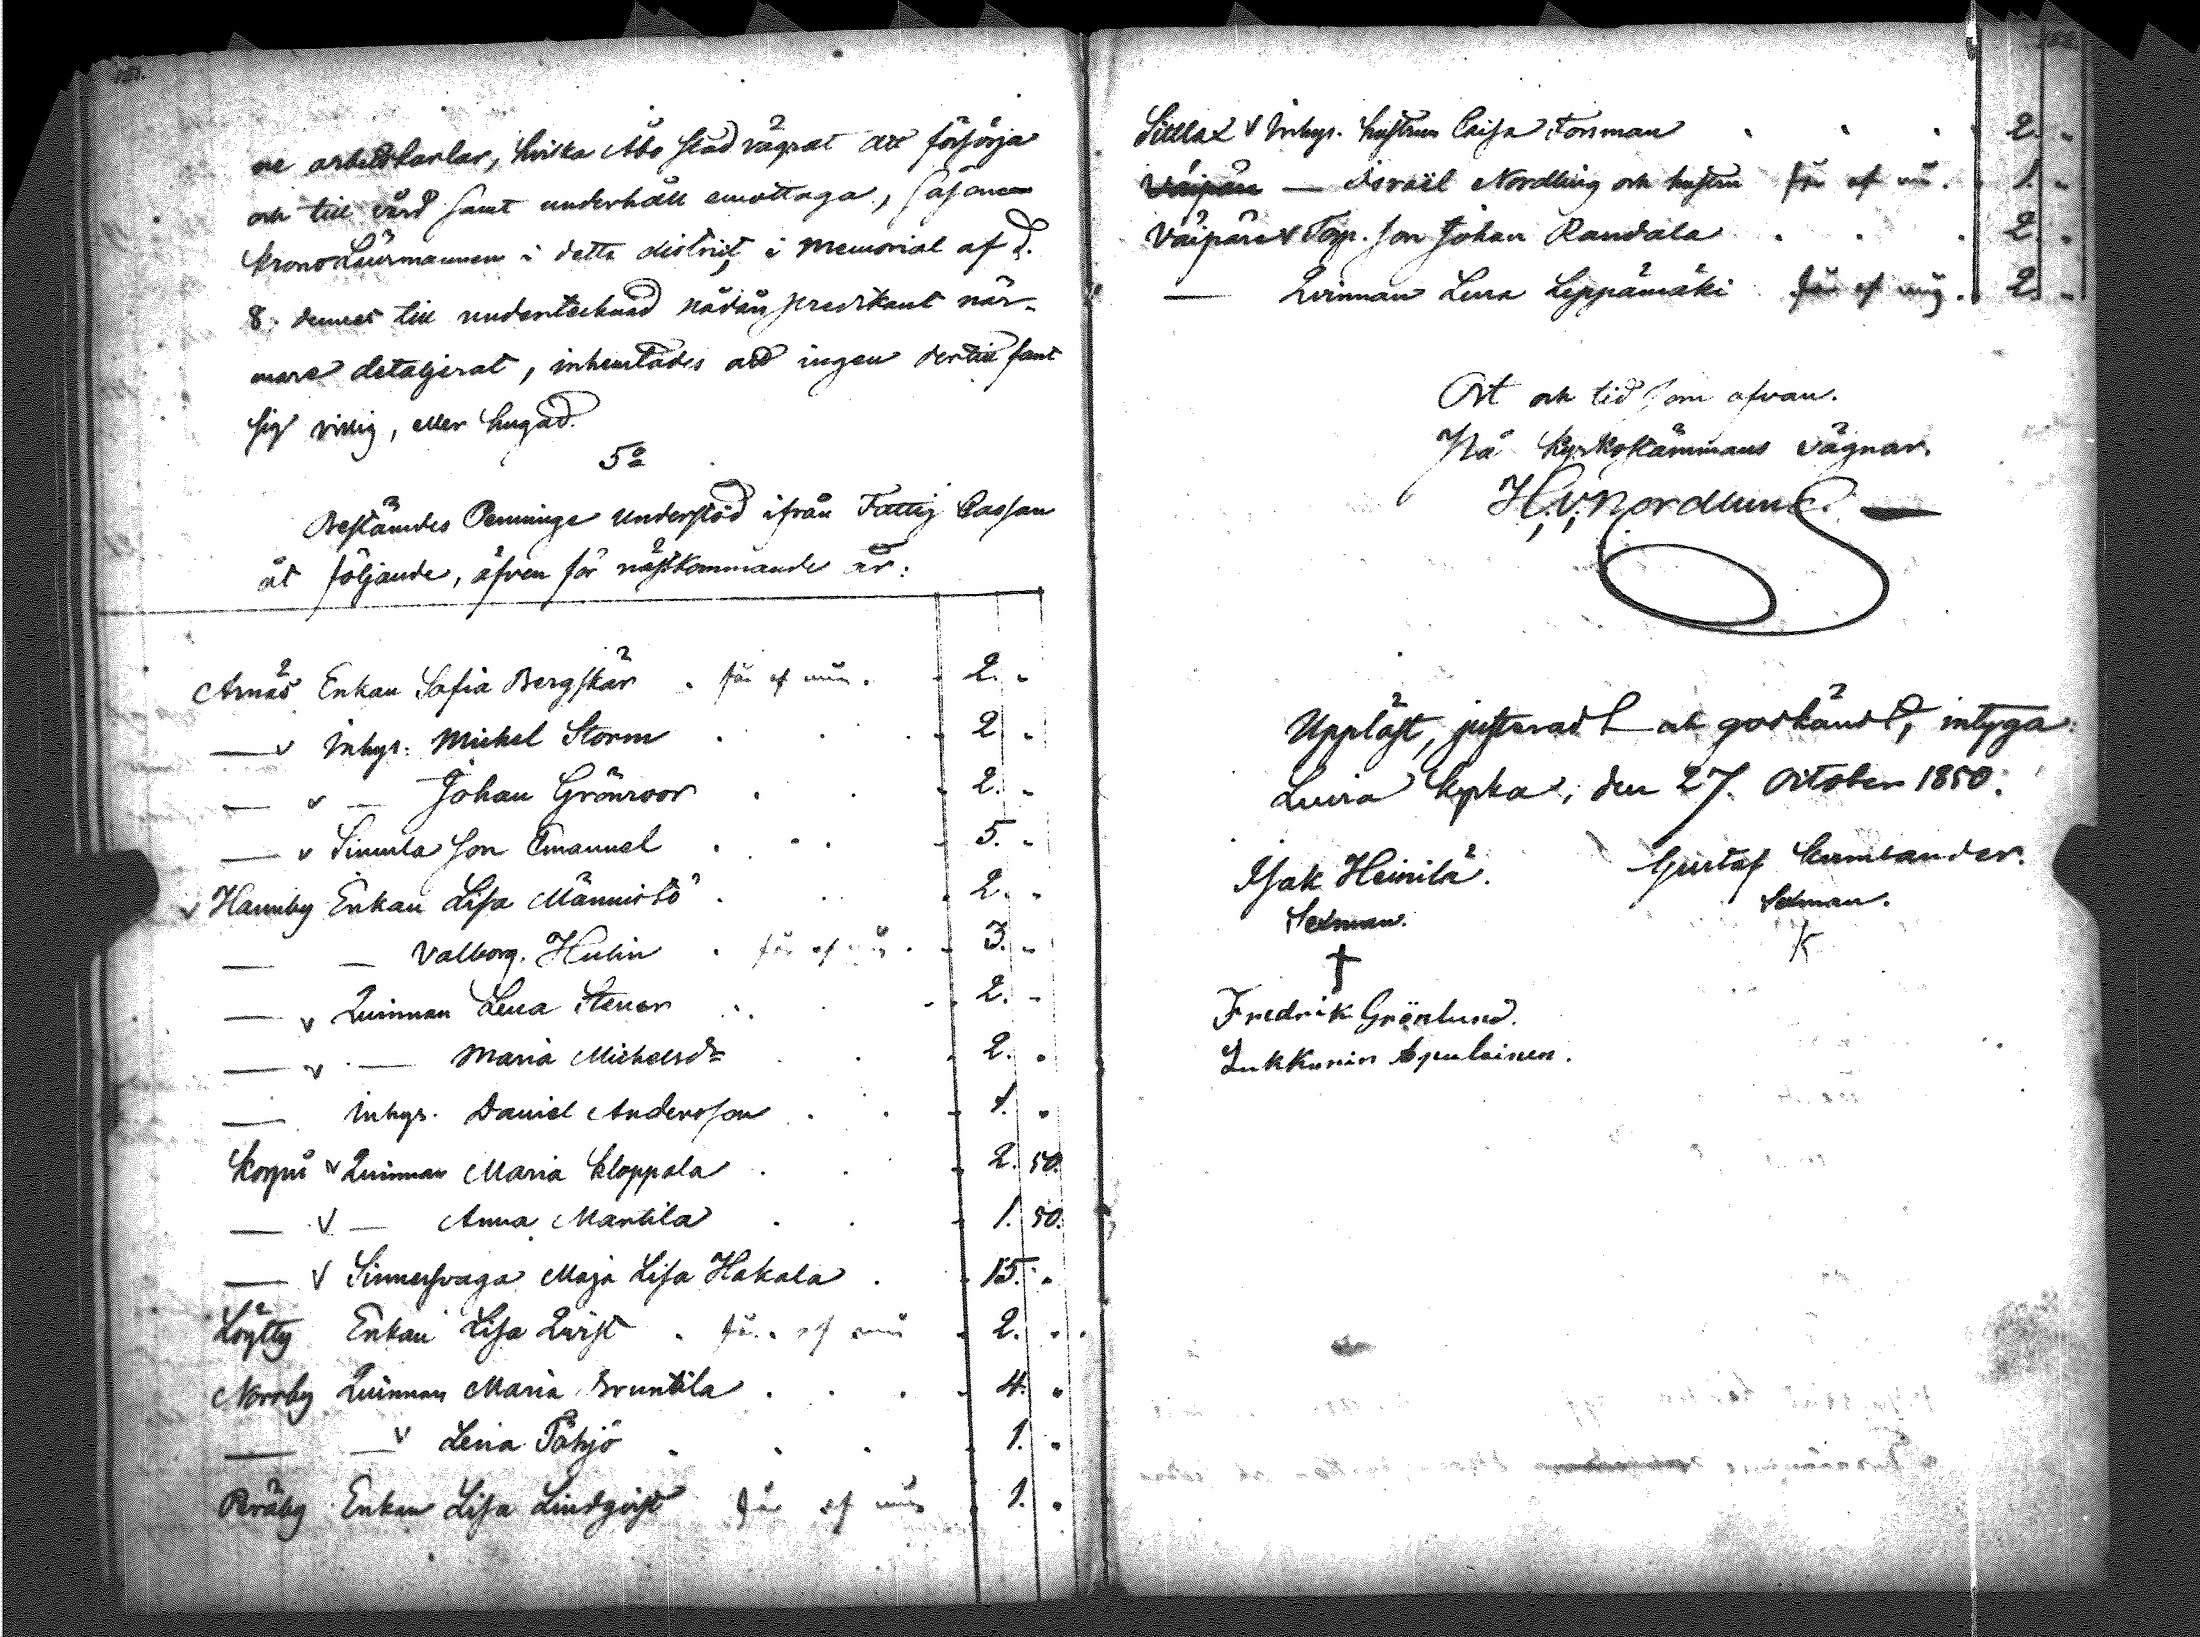 ne arbetskarlar, hvilka Åbo stad vägrat att försörja
och till vård samt underhåll emottaga, såsom
kronoLänsmannen i detta district, i Memorial af d.
8. dennes till undertecknad nådårspredikant när-
mare detaljerat, inhemtades att ingen dertill fant
sig villig, eller hugad.
5o
Bestämdes Penninge understöd ifrån Fattig Cassan
åt följande, äfven för nästkommande år:
Arnäs Enkan Sofia Bergskär . får af mig . 2. "
— v Inhys. Michel Storm . . . 2 "
— v — Johan Grönroos . . . 2. "
— v Simula Son Emanuel . . . 5. "
v Hannby Enkan Lisa Männistö . . . 2. "
— — Valborg Hulin . får af mig . 3. "
— v Qvinnan Lena Stener . . . 2. "
— v — Maria Michelsdr . . 2. "
— Inhys. Daniel Andersson . . . 1. "
Korpi v Qvinnan Maria Kloppala . . 2. 50.
— v — Anna Martila . . . 1. 50.
— v Sinnersvaga Maja Lisa Hakala . . 15. "
Löytty Enkan Lisa Qvist . får af mig . 2. "
Norrby Qvinnan Maria Bruntila . . . 4. "
— — v Lena Töhjö . . . 1. "
Präby Enkan Lisa Lindqvist får af mig . 1. "
Sillax v Inhys. hustrun Caisa Forsman . . . 2. "
— Israël Nordling och hustru får af mig . 1. "
Väipäre v Torp. Son Johan Randala . . . 2. "
— Qvinnan Lena Leppämäki får af mig . 2. "
Ort och tid som ofvan.
På Kyrkostämmans vägnar
H. V. Nordlund.
Uppläst, justeradt och godkändt, intyga
Kyrka, den 27. October 1850.
Isak Heinilä. Gustaf
Sexman. Sexman.
Fredrik Grönlund.
Lukkarin Apulainen.